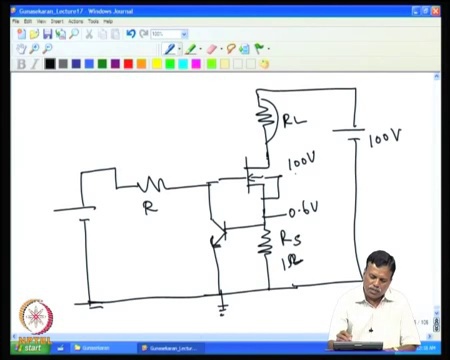 Gunasekaran_Lecture17 - Windows Journal
File Edit View Insert Actions Tools Help
100%
B I
RL
100V
100V
0.6V
R
RS
1Ω
start
Gunasekaran
Gunasekaran_Lectu...